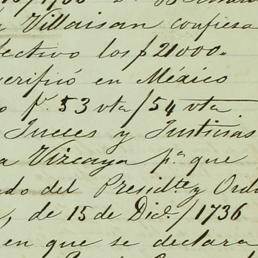 Villaisan confiesa
fectivo los $21000.
verificó en México
fs. 53 vta/54 vta
Jueces y Justicias
a Vizcaya pa. que
ado del Presidte y Oid
, de 15 de Dice./1736
en que se declara